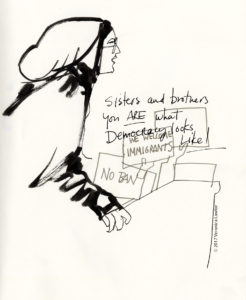 Sisters and brothers
you ARE what
Democracy looks
Like!
WE WELCOME
IMMIGRANTS
NO BAN
© 2017 Veronica Lawlor